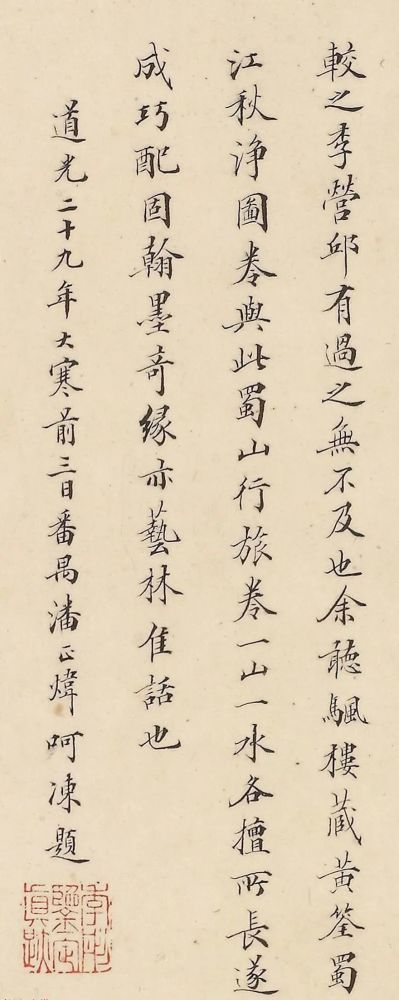 較之李營邱有過之無不及也余聽颿樓藏黃筌蜀
江秋淨圖卷與此蜀山行旅卷一山一水各擅所長遂
成巧配固翰墨奇緣亦藝林佳話也
道光二十九年大寒前三日番禺潘正煒呵凍題
季彤鑒定真跡